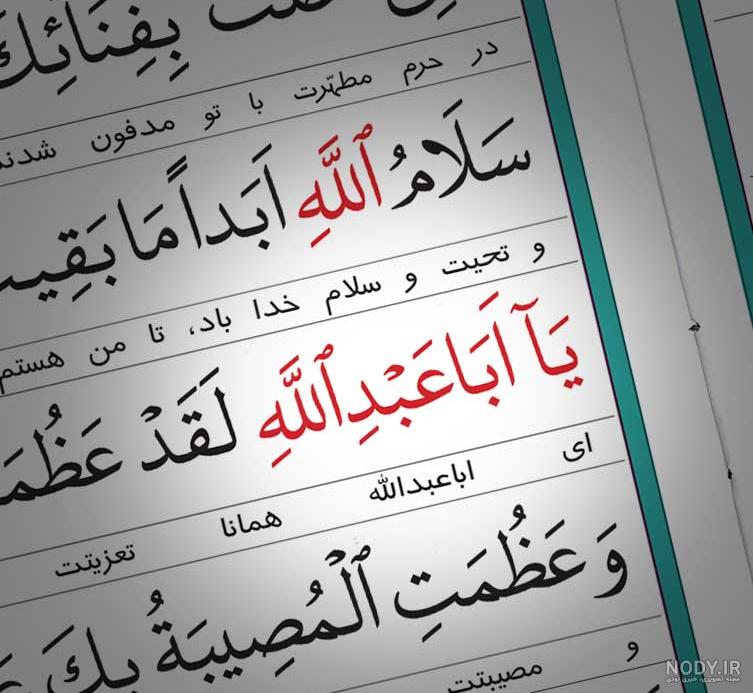 بِفِنَائِكَ
در حرم مطهّرت با تو مدفون شدند
سَلَامُ ٱللَّهِ اَبَداً مَا بَقِیـ
و تحیت و سلام خدا باد، تا من هستم
يَآ اَبَاعَبْدِٱللَّهِ لَقَدْ عَظُمَـ
ای اباعبدالله همانا تعزیتت
وَ عَظُمَتِ ٱلْمُصِيبَةُ بِكَ
و مصیبتت
NODY.IR
مجله تصویری، خبری نودی